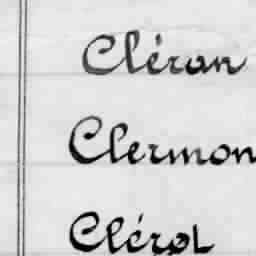 Cléran
Clermon
Clérol